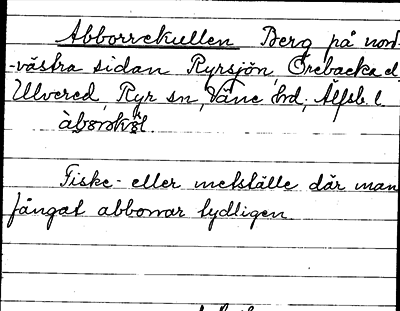 Abborrekullen Berg på nord-
-västra sidan Ryrsjön, Örebacka d
Ulvered, Ryr sn, Väne hd, Älfsb. l
Fiske- eller metställe där man
fångat abborrar tydligen